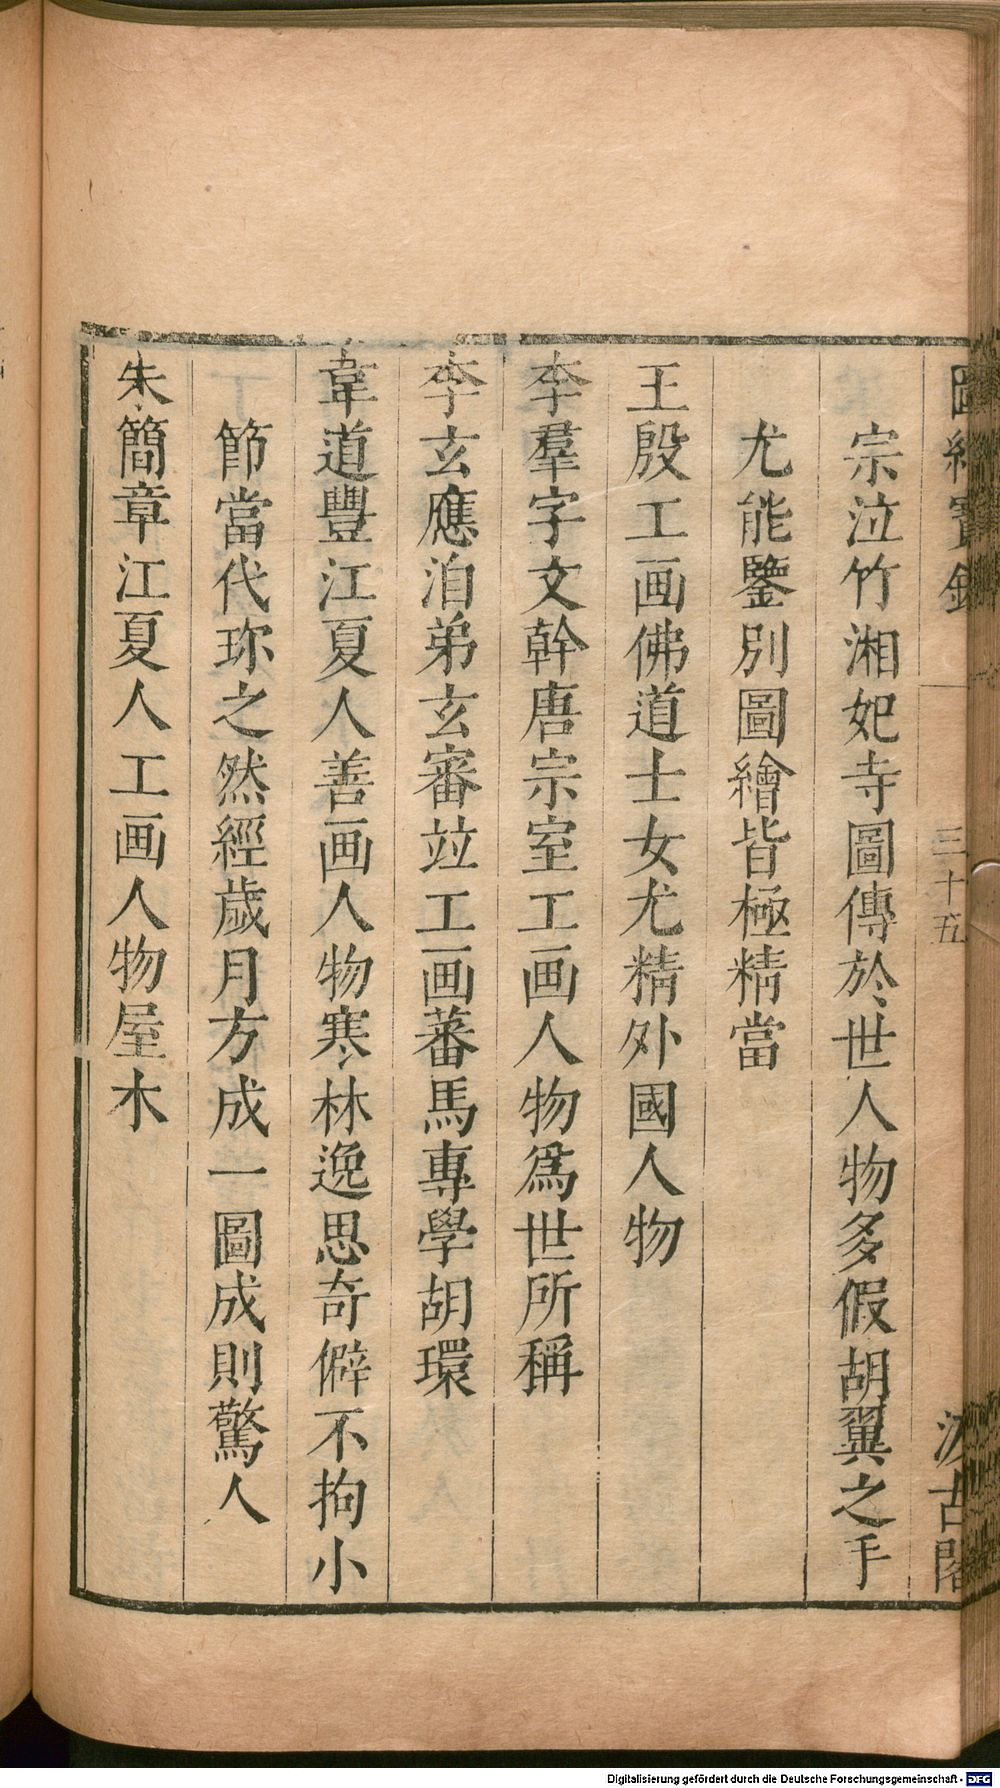 圖繪寶鑑
三十五
汲古閣
宗泣竹湘妃寺圖傳於世人物多假胡翼之手
尤能鑒別圖繪皆極精當
王殷工画佛道士女尤精外國人物
李羣字文幹唐宗室工画人物爲世所稱
李玄應洎弟玄審竝工画蕃馬專學胡瓌
韋道豐江夏人善画人物寒林逸思奇僻不拘小
節當代珎之然經歲月方成一圖成則驚人
朱簡章江夏人工画人物屋木
Digitalisierung gefördert durch die Deutsche Forschungsgemeinschaft - DFG